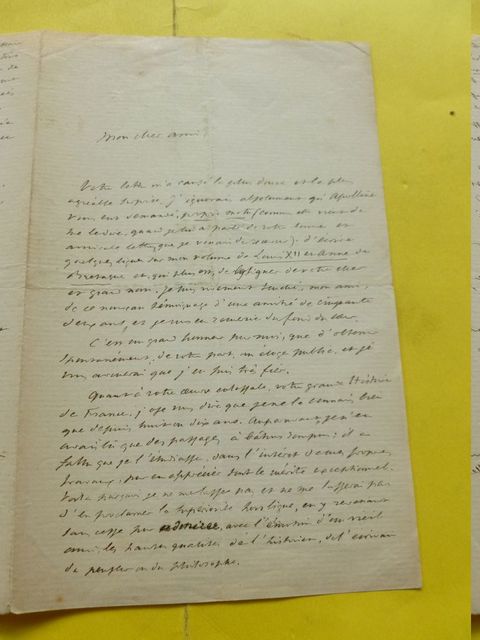 Mon cher ami,
Votre lettre m'a causé la plus douce et la plus
agréable surprise. J'ignorais absolument qu'Apolline
vous eut demandé, proprio motu (comme elle vient de
me le dire, quand je lui ai parlé de votre bonne et
amicale lettre que je venais de recevoir), d'écrire
quelques lignes sur mon volume de Louis XII et Anne de
Bretagne et, qui plus est, de les signer de votre cher
et grand nom. Je suis vivement touché, mon ami,
de ce nouveau témoignage d'une amitié de cinquante
ans, et je vous en remercie du fond du cœur.
C'est un grand honneur pour moi, que d'obtenir
spontanément, de votre part, un éloge public, et je
vous avouerai que j'en suis très fier.
Quant à votre œuvre colossale, votre grande Histoire
de France, j'ose vous dire que je ne la connais bien
que depuis huit ou dix ans. Auparavant, je n'en
avais lu que des passages à bâtons rompus; il a
fallu que je l'étudiasse, dans l'intérêt de mes propres
travaux, pour en apprécier tout le mérite exceptionnel.
Voilà pourquoi je ne me lasse pas et ne me lasserai pas
d'en proclamer la supériorité hors ligne, en y revenant
sans cesse pour admirer, avec l'émotion d'un vieil
ami, les hautes qualités de l'historien, de l'écrivain
du penseur ou du philosophe.